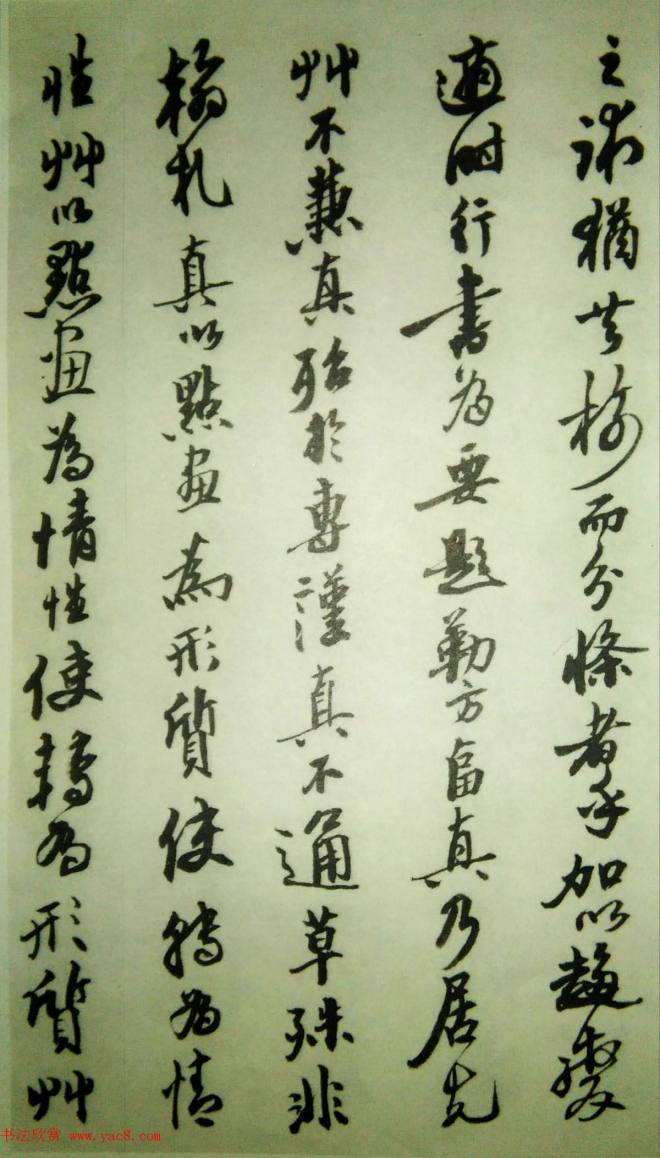 之疎猶共樹而分條者乎加以趨變
適時行書為要題勒方畐真乃居先
艸不兼真殆於專謹真不通草殊非
翰札真以點畫為形質使轉為情
性艸以點畫為情性使轉為形質艸
书法欣赏 www.yac8.com